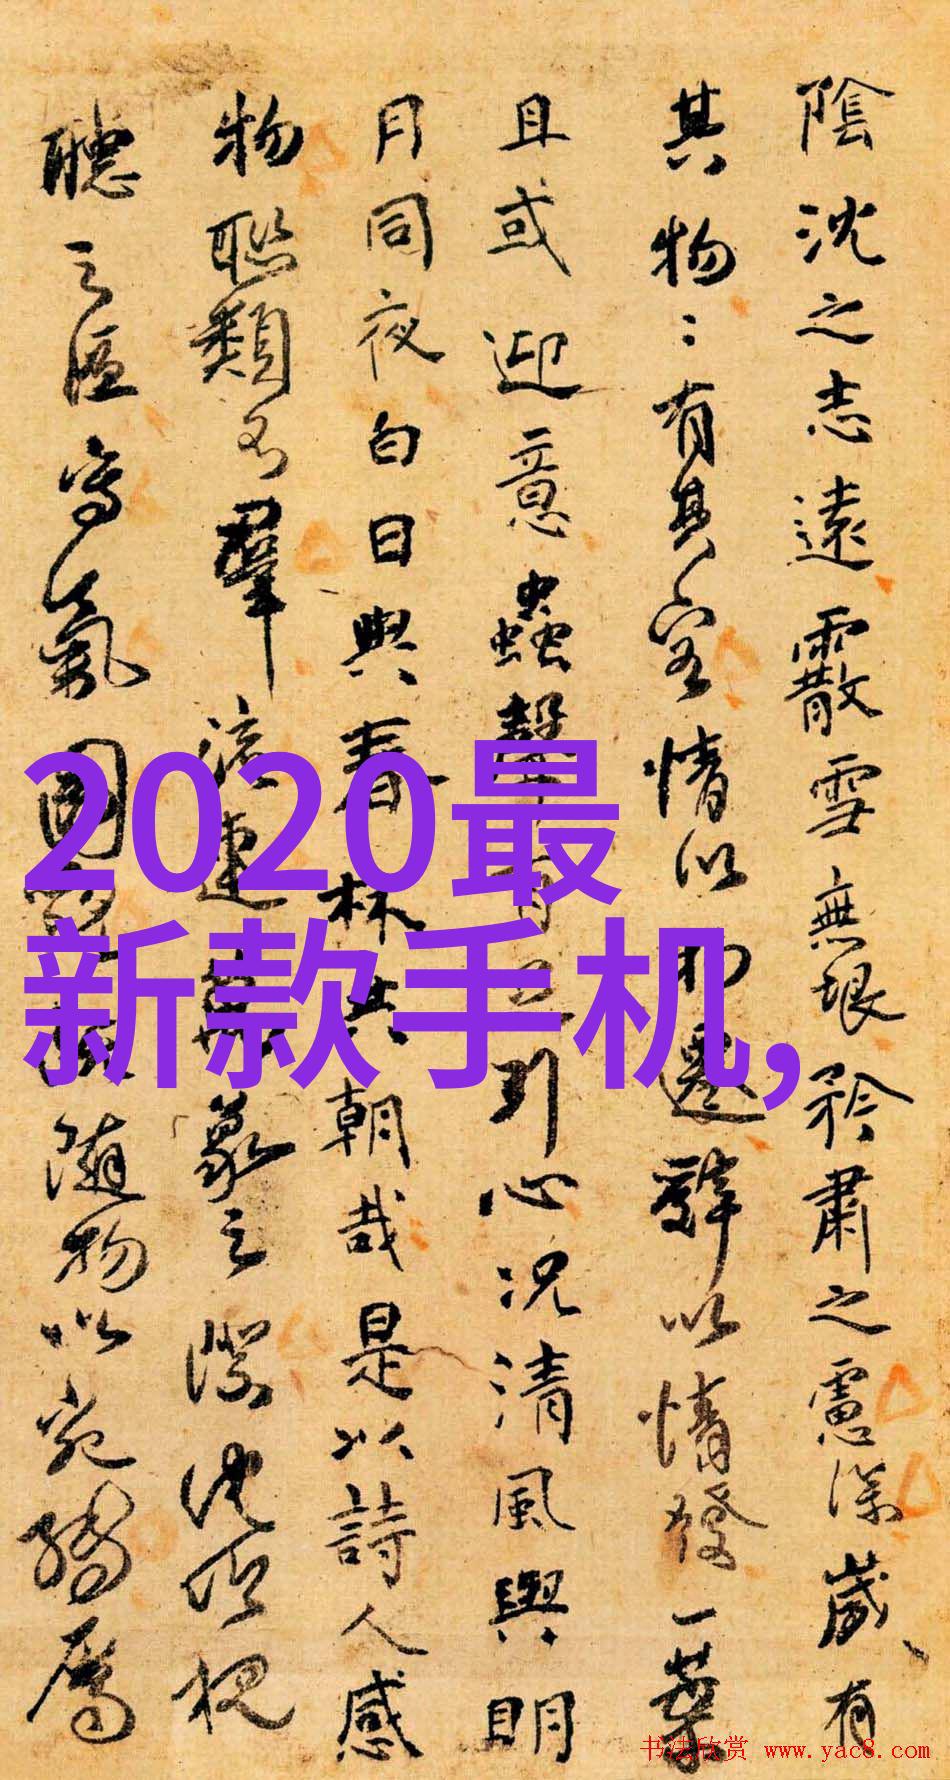 陰沈之志遠霰雪無垠矜肅之慮深歲有
其物〻有其容情以物遷辭以情發一葉
且或迎意蟲聲有足引心況清風與明
月同夜白日與春林共朝哉是以詩人感
物聯類不流連萬象之際沈吟視
聽之區寫氣圖貌既隨物以宛轉屬
2020最
新款手机,
书法欣赏 www.yac8.com